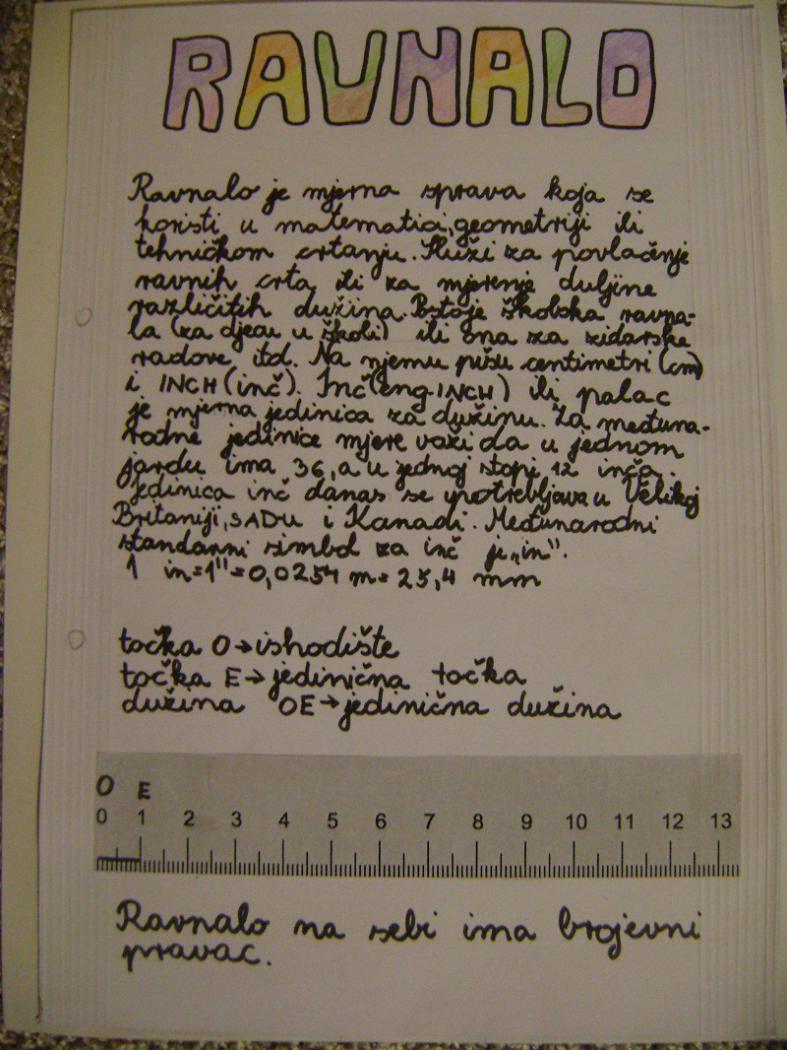 RAVNALO
Ravnalo je mjerna sprava koja se
koristi u matematici, geometriji ili
tehničkom crtanju. Služi za povlačenje
ravnih crta ili za mjerenje duljine
različitih dužina. Postoje školska ravna-
la (za djecu u školi) ili ona za zidarske
radove itd. Na njemu pišu centimetri (cm)
i INCH (inč). Inč (eng. INCH) ili palac
je mjerna jedinica za dužinu. Za međuna-
rodne jedinice mjere važi da u jednom
jardu ima 36, a u jednoj stopi 12 inča.
Jedinica inč danas se upotrebljava u Velikoj
Britaniji, SADU i Kanadi. Međunarodni
standarni simbol za inč je „in".
1 in = 1" = 0,0254 m = 25,4 mm
točka O → ishodište
točka E → jedinična točka
dužina OE → jedinična dužina
O E
0 1 2 3 4 5 6 7 8 9 10 11 12 13
Ravnalo na sebi ima brojevni
pravac.